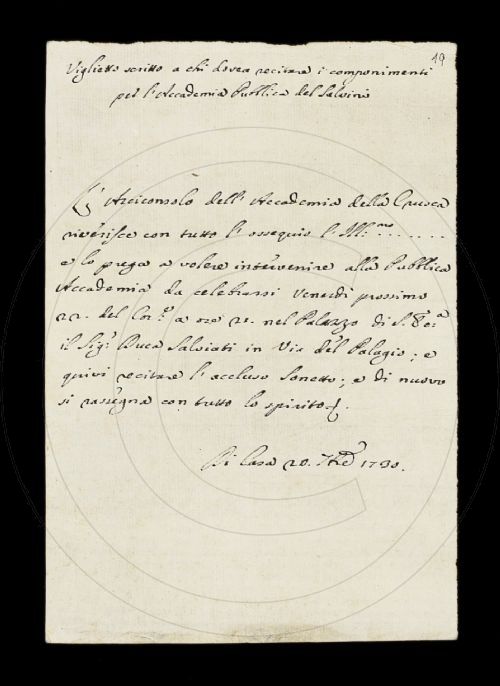 19
Viglietto scritto a chi dovea recitare i componimenti
per l'Accademia Pubblica del Salvini
L'Arciconsolo dell'Accademia della Crusca
riverisce con tutto l'ossequio l'Ill:mo .......
e lo prega a volere intervenire alla Pubblica
Accademia da celebrarsi Venerdì prossimo
22. del Corr.e a ore 21. nel Palazzo di S. Ec:a
il Sig: Duca Salviati in Via del Palagio; e
quivi recitare l'accluso Sonetto; e di nuovo
si rassegna con tutto lo spirito
Di Casa 20. 7bre 1730.